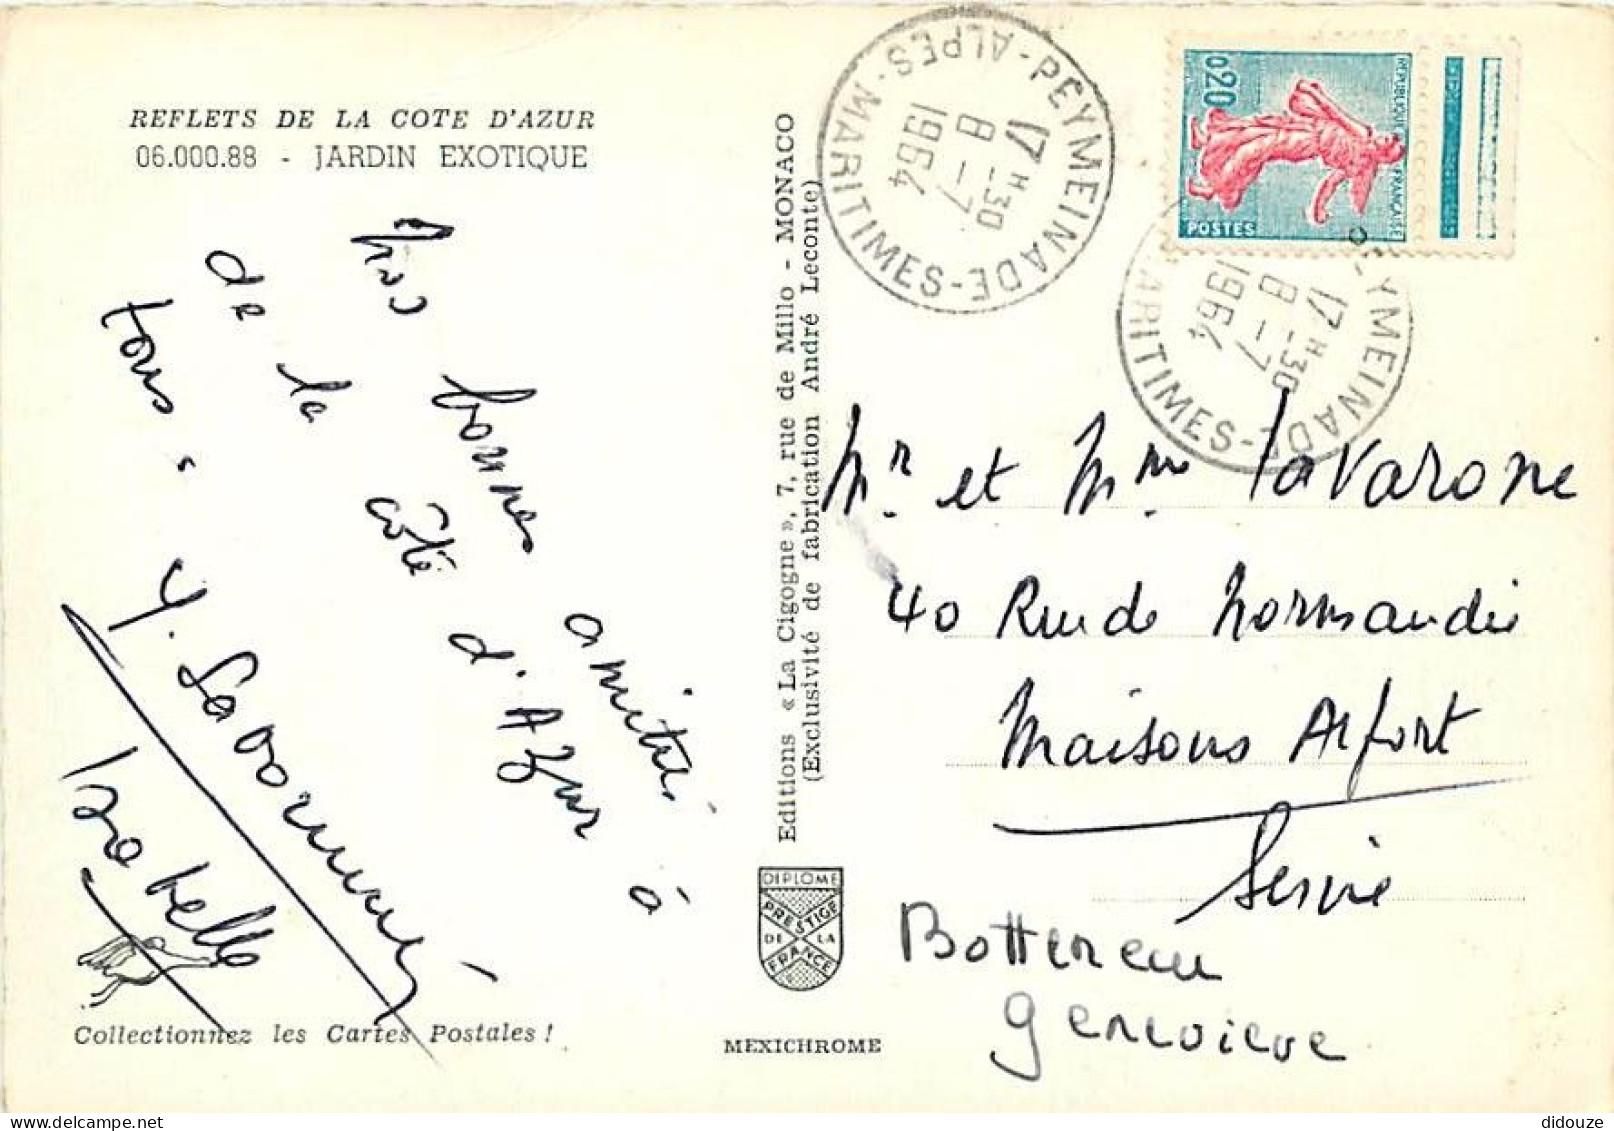 REFLETS DE LA COTE D'AZUR
06.000.88 - JARDIN EXOTIQUE
bonnes amitié à
de la côté d'Azur
tous.
Y.
Isabelle
Collectionnez les Cartes Postales !
Editions « La Cigogne », 7, rue de Millo - MONACO
(Exclusivité de fabrication André Leconte)
DIPLOME
PRESTIGE
DE LA
FRANCE
MEXICHROME
PEYMEINADE - ALPES-MARITIMES
17 H 30
8 - 7
1964
0,20
REPUBLIQUE FRANÇAISE
POSTES
PEYMEINADE
ARITIMES
17 H 30
8 - 7
1964
Mr et Mme Lavarone
40 Rue de Normandie
Maisons Alfort
Seine
Bottereau
Genevieve
didouze